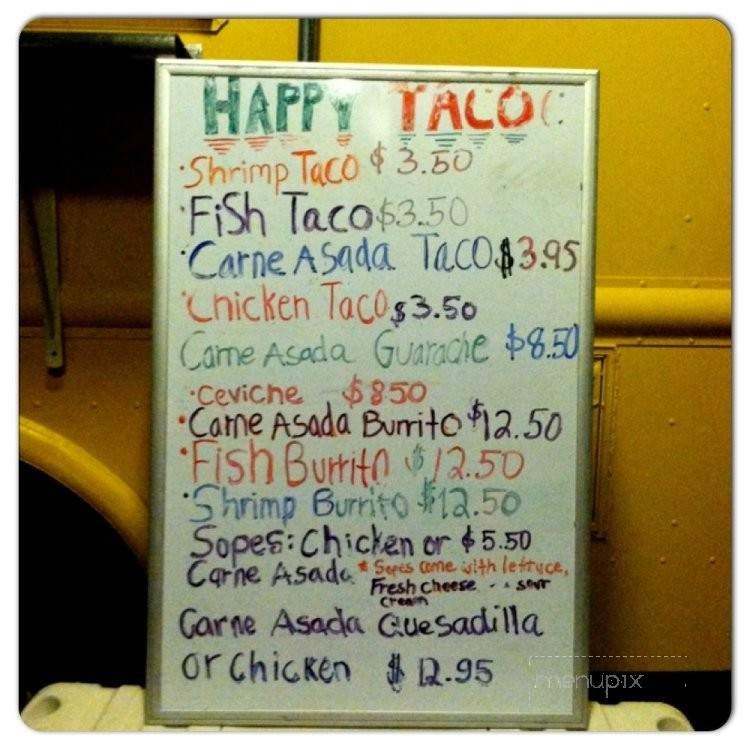 HAPPY TACO
·Shrimp Taco $3.50
·Fish Taco $3.50
·Carne Asada Taco $3.95
·Chicken Taco $3.50
Carne Asada Guarache $8.50
·Ceviche $8.50
·Carne Asada Burrito $12.50
·Fish Burrito $12.50
·Shrimp Burrito $12.50
Sopes: Chicken or $5.50
Carne Asada * Sopes come with lettuce,
Fresh Cheese - - sour
cream
Carne Asada Quesadilla
or Chicken $12.95
menupix